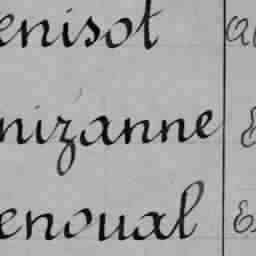 enisot
nizanne
enoual